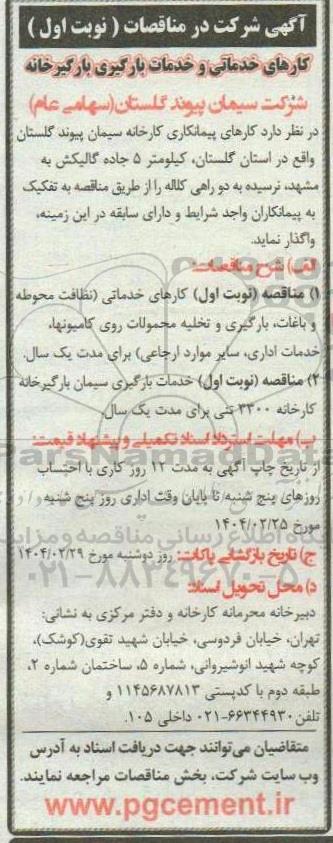 آگهی شرکت در مناقصات ( نوبت اول )
کارهای خدماتی و خدمات بارگیری بارگیرخانه
شرکت سیمان پیوند گلستان(سهامی عام)
در نظر دارد کارهای پیمانکاری کارخانه سیمان پیوند گلستان
واقع در استان گلستان، کیلومتر ۵ جاده گالیکش به
مشهد، نرسیده به دو راهی کلاله را از طریق مناقصه به تفکیک
به پیمانکاران واجد شرایط و دارای سابقه در این زمینه،
واگذار نماید.
الف) شرح مناقصات:
۱) مناقصه (نوبت اول) کارهای خدماتی (نظافت محوطه
و باغات، بارگیری و تخلیه محمولات روی کامیونها،
خدمات اداری، سایر موارد ارجاعی) برای مدت یک سال.
۲) مناقصه (نوبت اول) خدمات بارگیری سیمان بارگیرخانه
کارخانه ۳۳۰۰ تنی برای مدت یک سال.
ب) مهلت استرداد اسناد تکمیلی و پیشنهاد قیمت:
ParsNamadData
از تاریخ چاپ آگهی به مدت ۱۲ روز کاری با احتساب
روزهای پنج شنبه تا پایان وقت اداری روز پنج شنبه
مورخ ۱۴۰۴/۰۲/۲۵
پایگاه اطلاع رسانی مناقصه و مزایده
ج) تاریخ بازگشائی پاکات: روز دوشنبه مورخ ۱۴۰۴/۰۲/۲۹
۰۲۱-۸۸۳۴۹۶۷۰-۵
د) محل تحویل اسناد:
دبیرخانه محرمانه کارخانه و دفتر مرکزی به نشانی:
تهران، خیابان فردوسی، خیابان شهید تقوی(کوشک)،
کوچه شهید انوشیروانی، شماره ۵، ساختمان شماره ۲،
طبقه دوم با کدپستی ۱۱۴۵۶۸۷۸۱۳ و
تلفن۶۶۳۴۴۹۳۰-۰۲۱ داخلی ۱۰۵.
متقاضیان می‌توانند جهت دریافت اسناد به آدرس
وب سایت شرکت، بخش مناقصات مراجعه نمایند.
www.pgcement.ir